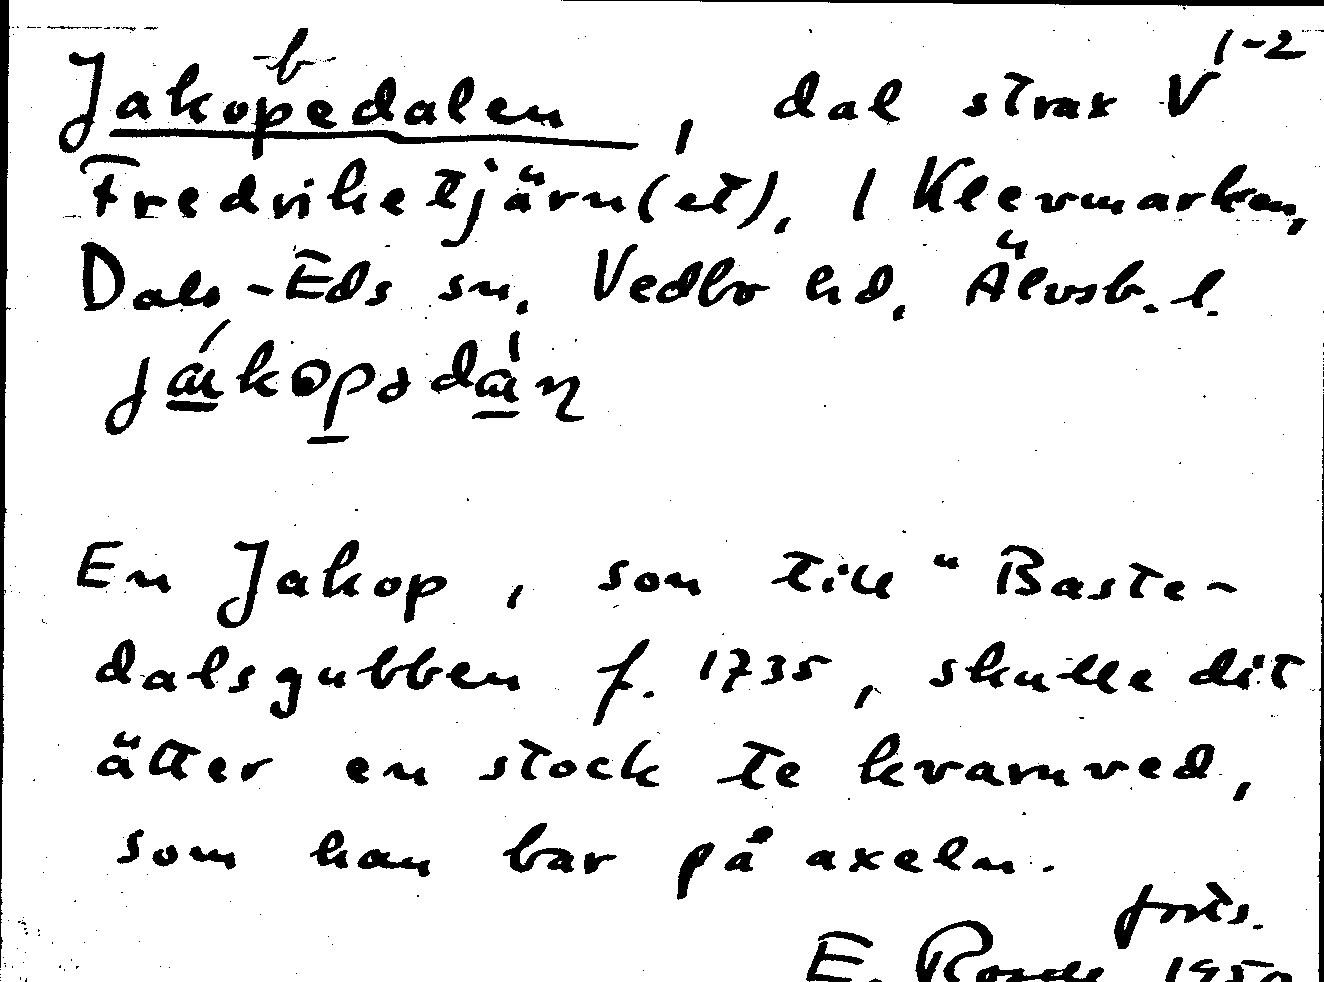 1-2
b
Jakopedalen, dal strax V
Fredriketjärn(et), i Klevmarken,
Dals-Eds sn, Vedbo hd, Älvsb. l.
En Jakop, son till "Baste-
dalsgubben f. 1735, skulle dit
ätter en stock te kvarnved,
som han bar på axeln.
forts.
E. 1950